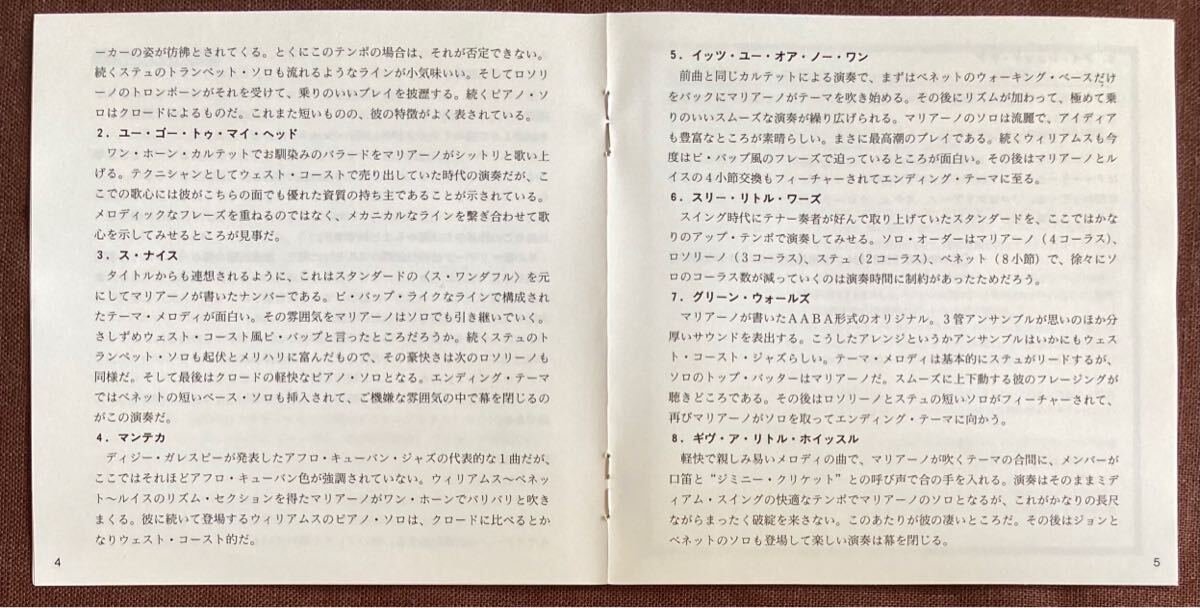 ーカーの姿が彷彿とされてくる。とくにこのテンポの場合は、それが否定できない。
続くステュのトランペット・ソロも流れるようなラインが小気味いい。そしてロソリ
ーノのトロンボーンがそれを受けて、乗りのいいプレイを披瀝する。続くピアノ・ソ
ロはクロードによるものだ。これまた短いものの、彼の特徴がよく表されている。
2．ユー・ゴー・トゥ・マイ・ヘッド
ワン・ホーン・カルテットでお馴染みのバラードをマリアーノがシットリと歌い上
げる。テクニシャンとしてウェスト・コーストで売り出していた時代の演奏だが、こ
こでの歌心には彼がこちらの面でも優れた資質の持ち主であることが示されている。
メロディックなフレーズを重ねるのではなく、メカニカルなラインを繋ぎ合わせて歌
心を示してみせるところが見事だ。
3．ス・ナイス
タイトルからも連想されるように、これはスタンダードの〈ス・ワンダフル〉を元
にしてマリアーノが書いたナンバーである。ビ・バップ・ライクなラインで構成され
たテーマ・メロディが面白い。その雰囲気をマリアーノはソロでも引き継いでいく。
さしずめウェスト・コースト風ビ・バップと言ったところだろうか。続くステュのト
ランペット・ソロも起伏とメリハリに富んだもので、その豪快さは次のロソリーノも
同様だ。そして最後はクロードの軽快なピアノ・ソロとなる。エンディング・テーマ
ではベネットの短いベース・ソロも挿入されて、ご機嫌な雰囲気の中で幕を閉じるの
がこの演奏だ。
4．マンテカ
ディジー・ガレスピーが発表したアフロ・キューバン・ジャズの代表的な1曲だが、
ここではそれほどアフロ・キューバン色が強調されていない。ウィリアムス〜ベネッ
ト〜ルイスのリズム・セクションを得たマリアーノがワン・ホーンでバリバリと吹き
まくる。彼に続いて登場するウィリアムスのピアノ・ソロは、クロードに比べるとか
なりウェスト・コースト的だ。
4
5．イッツ・ユー・オア・ノー・ワン
前曲と同じカルテットによる演奏で、まずはベネットのウォーキング・ベースだけ
をバックにマリアーノがテーマを吹き始める。その後にリズムが加わって、極めて乗
りのいいスムーズな演奏が繰り広げられる。マリアーノのソロは流麗で、アイディア
も豊富なところが素晴らしい。まさに最高潮のプレイである。続くウィリアムスも今
度はビ・バップ風のフレーズで迫っているところが面白い。その後はマリアーノとル
イスの4小節交換もフィーチャーされてエンディング・テーマに至る。
6．スリー・リトル・ワーズ
スイング時代にテナー奏者が好んで取り上げていたスタンダードを、ここではかな
りのアップ・テンポで演奏してみせる。ソロ・オーダーはマリアーノ（4コーラス）、
ロソリーノ（3コーラス）、ステュ（2コーラス）、ベネット（8小節）で、徐々にソ
ロのコーラス数が減っていくのは演奏時間に制約があったためだろう。
7．グリーン・ウォールズ
マリアーノが書いたAABA形式のオリジナル。3管アンサンブルが思いのほか分
厚いサウンドを表出する。こうしたアレンジというかアンサンブルはいかにもウェス
ト・コースト・ジャズらしい。テーマ・メロディは基本的にステュがリードするが、
ソロのトップ・バッターはマリアーノだ。スムーズに上下動する彼のフレージングが
聴きどころである。その後はロソリーノとステュの短いソロがフィーチャーされて、
再びマリアーノがソロを取ってエンディング・テーマに向かう。
8．ギヴ・ア・リトル・ホイッスル
軽快で親しみ易いメロディの曲で、マリアーノが吹くテーマの合間に、メンバーが
口笛と“ジミニー・クリケット”との呼び声で合の手を入れる。演奏はそのままミデ
ィアム・スイングの快適なテンポでマリアーノのソロとなるが、これがかなりの長尺
ながらまったく破綻を来さない。このあたりが彼の凄いところだ。その後はジョンと
ベネットのソロも登場して楽しい演奏は幕を閉じる。
5